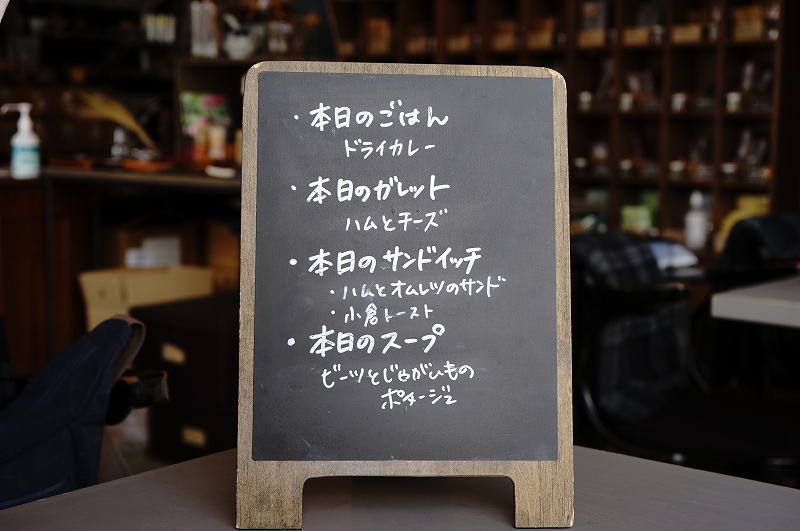 ・本日のごはん
ドライカレー
・本日のガレット
ハムとチーズ
・本日のサンドイッチ
・ハムとオムレツのサンド
・小倉トースト
・本日のスープ
ビーツとじゃがいもの
ポタージュ